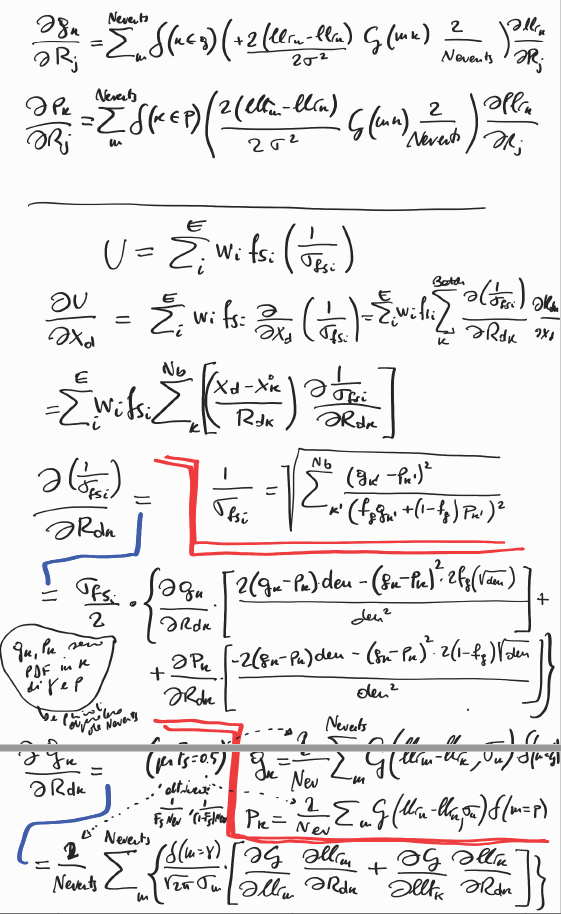 ∂g_k/∂R_j = Σ_m^{Nevents} δ(k∈g) (+2(llr_m − llr_k)/2σ² G(mk) 2/Nevents) ∂llr_k/∂R_j
∂p_k/∂R_j = Σ_m^{Nevents} δ(k∈p) (2(llr_m − llr_k)/2σ² G(mk) 2/Nevents) ∂llr_k/∂R_j
U = Σ_i^E w_i fs_i (1/σ_{fsi})
∂U/∂X_d = Σ_i^E w_i fs_i ∂/∂X_d (1/σ_{fsi}) = Σ_i^E w_i fs_i Σ_k^{Batch} ∂(1/σ_{fsi})/∂R_{dk} ∂R_{dk}/∂X_d
= Σ_i^E w_i fs_i Σ_k^{Nb} [((X_d − X_k)/R_{dk}) ∂(1/σ_{fsi})/∂R_{dk}]
∂(1/σ_{fsi})/∂R_{dk} =
1/σ_{fsi} = √(Σ_{k'}^{Nb} (g_{k'} − p_{k'})²/(f_g g_{k'} + (1−f_g) p_{k'})²)
= σ_{fsi}/2 · {∂g_k/∂R_{dk} · [(2(g_k−p_k)·den − (g_k−p_k)²·2f_g(√den))/den²] +
+ ∂p_k/∂R_{dk} · [(−2(g_k−p_k)den − (g_k−p_k)²·2(1−f_g)√den)/den²]}
g_k, p_k sono
PDF in k
di γ e p
∂g_k/∂R_{dk} =
(per fs=0.5)
g_k = 2/Nev Σ_m^{Nevents} G(llr_m − llr_k, σ_m) δ(m=g)
altrimenti
1/Fs Nev, 1/(1−Fs)Nev
p_k = 2/Nev Σ_m G(llr_m − llr_k, σ_m) δ(m=p)
= 2/Nevents Σ_m^{Nevents} {δ(m=γ)/(√2π σ_m) · [∂G/∂llr_m ∂llr_m/∂R_{dk} + ∂G/∂llr_k ∂llr_k/∂R_{dk}]}